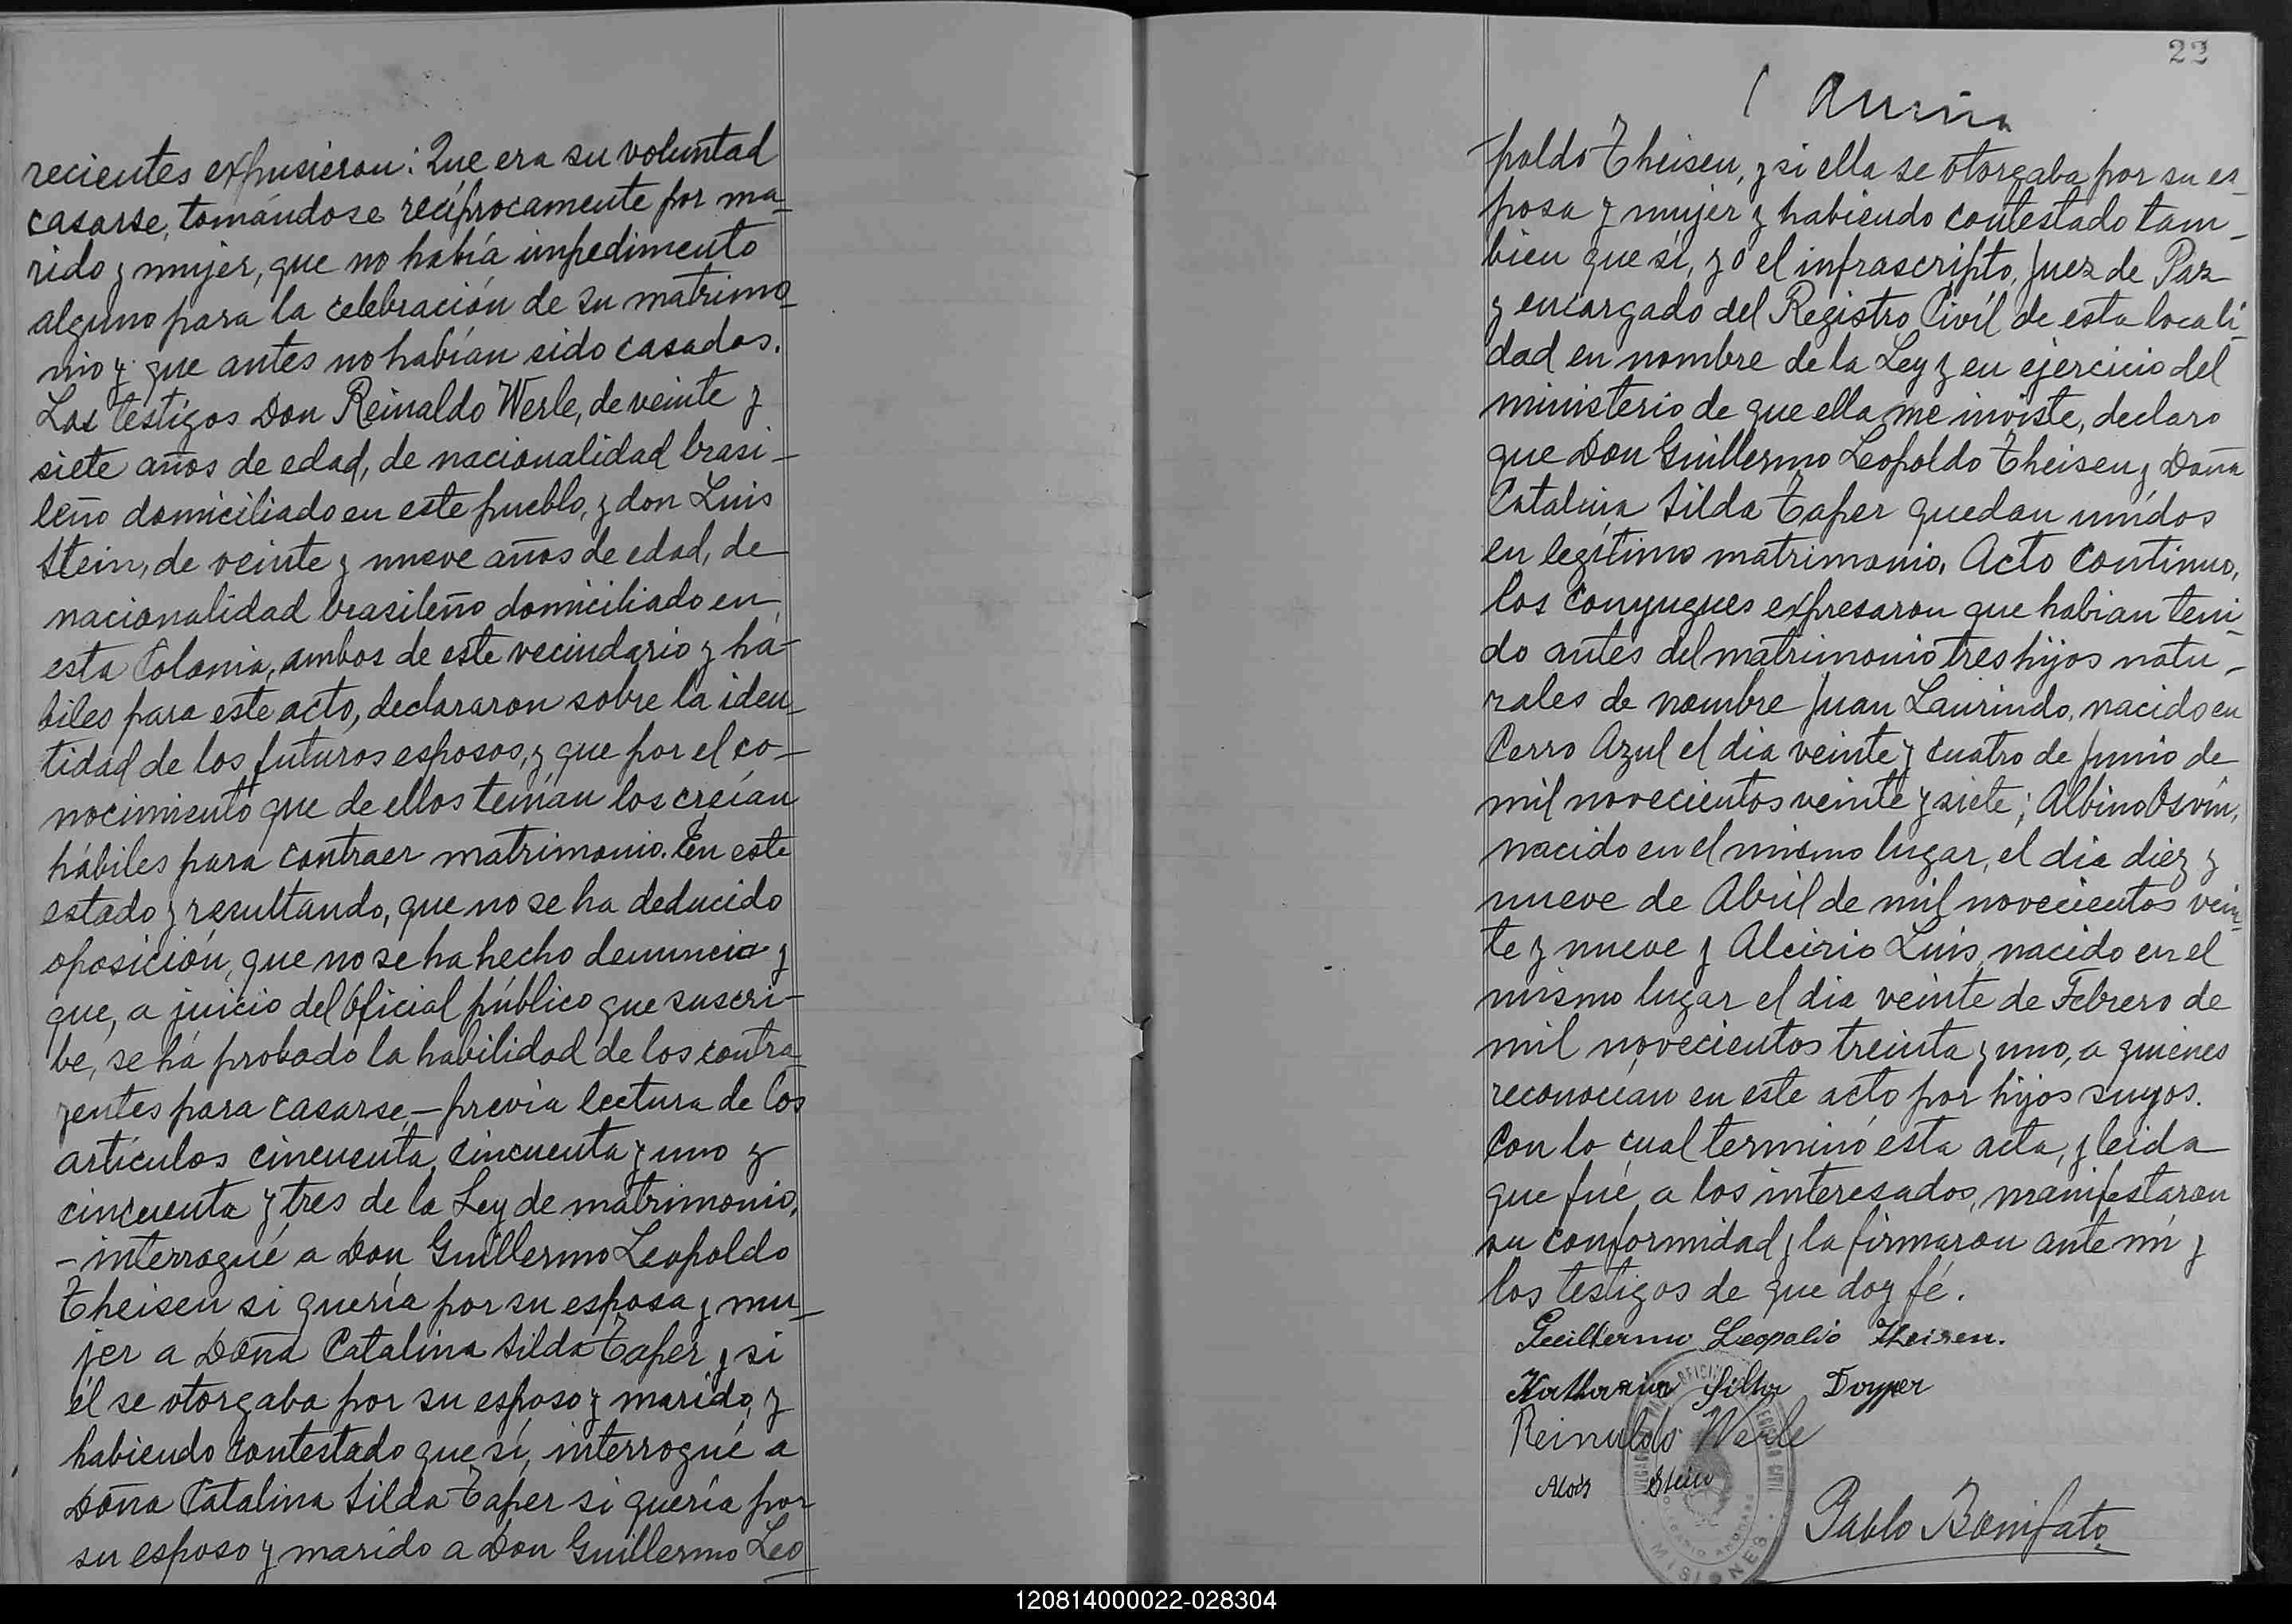 recientes expusieron: Que era su voluntad
casarse, tomándose recíprocamente por ma-
rido y mujer, que no había impedimento
alguno para la celebración de su matrimo-
nio y que antes no habían sido casados.
Los testigos Don Reinaldo Werle, de veinte y
siete años de edad, de nacionalidad brasi-
leño domiciliado en este pueblo, y don Luis
Stein, de veinte y nueve años de edad, de
nacionalidad brasileño domiciliado en
esta Colonia, ambos de este vecindario y há-
biles para este acto, declararon sobre la iden-
tidad de los futuros esposos, y que por el co-
nocimiento que de ellos tenían los creían
hábiles para contraer matrimonio. En este
estado y resultando, que no se ha deducido
oposición, que no se ha hecho denuncia y
que, a juicio del Oficial público que suscri-
be, se há probado la habilidad de los contra-
yentes para casarse,-previa lectura de los
artículos cincuenta, cincuenta y uno y
cincuenta y tres de la Ley de matrimonio,
-interrogué a Don Guillermo Leopoldo
Theisen si quería por su esposa y mu-
jer a Doña Catalina Silda Taper y si
él se otorgaba por su esposo y marido, y
habiendo contestado que sí, interrogué a
Doña Catalina Silda Taper si quería por
su esposo y marido a Don Guillermo Leo-
22
poldo Theisen, y si ella se otorgaba por su es-
posa y mujer y habiendo contestado tam-
bien que sí, yo el infrascripto, Juez de Paz
y encargado del Registro Civíl de esta locali-
dad en nombre de la Ley y en ejercicio del
ministerio de que ella me inviste, declaro
que Don Guillermo Leopoldo Theisen y Doña
Catalina Silda Taper quedan unidos
en legítimo matrimonio. Acto continuo,
los conyugues expresaron que habian teni-
do antes del matrimonio tres hijos natu-
rales de nombre Juan Laurindo, nacido en
Cerro Azul el dia veinte y cuatro de Junio de
mil novecientos veinte y siete; Albino Osvin,
nacido en el mismo lugar, el dia diez y
nueve de Abril de mil novecientos vein-
te y nueve y Alcirio Luis, nacido en el
mismo lugar el dia veinte de Febrero de
mil novecientos treinta y uno, a quienes
reconocían en este acto por hijos suyos.
Con lo cual terminó esta acta, y leida
que fué a los interesados, manifestaron
su conformidad y la firmaron ante mí y
los testigos de que doy fé.
Guillermo Leopoldo Theisen.
Katharina Silda Dapper
Reinaldo Werle
Alois Stein
Pablo Bonifato
MISIONES
120814000022-028304